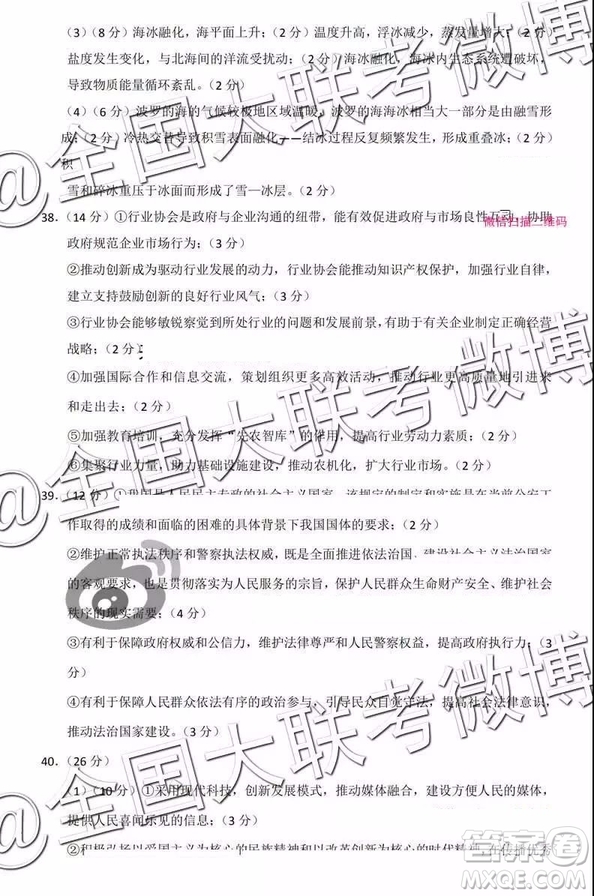 （3）（8 分）海冰融化，海平面上升；（2 分）温度升高，浮冰减少，蒸发量增大；（2 分）
盐度发生变化，与北海间的洋流受扰动；（2 分）海冰融化，海冰内生态系统遭破坏，
导致物质能量循环紊乱。（2 分）
（4）（6 分）波罗的海的气候较极地区域温暖，波罗的海海冰相当大一部分是由融雪形
成；（2 分）冷热交替导致积雪表面融化——结冰过程反复频繁发生，形成重叠冰；（2 分）
积
雪和碎冰重压于冰面而形成了雪—冰层。（2 分）
38.（14 分）①行业协会是政府与企业沟通的纽带，能有效促进政府与市场良性互动，协助
微信扫描二维码
政府规范企业市场行为；（3 分）
②推动创新成为驱动行业发展的动力，行业协会能推动知识产权保护，加强行业自律，
建立支持鼓励创新的良好行业风气；（3 分）
③行业协会能够敏锐察觉到所处行业的问题和发展前景，有助于有关企业制定正确经营
战略；（2 分）
④加强国际合作和信息交流，策划组织更多高效活动，推动行业高质量地引进来
和走出去；（2 分）
⑤加强教育培训，充分发挥“先农智库”的作用，提高行业劳动力素质；（2 分）
⑥集聚行业力量，助力基础设施建设，推动农机化，扩大行业市场。（2 分）
39.（12 分）①我国是人民民主专政的社会主义国家，该规定的制定和实施是在当前公安工
作取得的成绩和面临的困难的具体背景下我国国体的要求；（2 分）
②维护正常执法秩序和警察执法权威，既是全面推进依法治国、建设社会主义法治国家
的客观要求，也是贯彻落实为人民服务的宗旨，保护人民群众生命财产安全、维护社会
秩序的现实需要；（4 分）
③有利于保障政府权威和公信力，维护法律尊严和人民警察权益，提高政府执行力；（3
分）
④有利于保障人民群众依法有序的政治参与，引导民众自觉守法，提高社会法律意识，
推动法治国家建设。（3 分）
40.（26 分）
（1）（10 分）①采用现代科技，创新发展，推动媒体融合，建设方便人民的媒体，
提供人民喜闻乐见的信息；（3 分）
②积极弘扬以爱国主义为核心的民族精神和以改革创新为核心的时代精神，
@全国大联考微博
@全国大联考微博
@全国大联考微博
答案圈
MXQE.COM